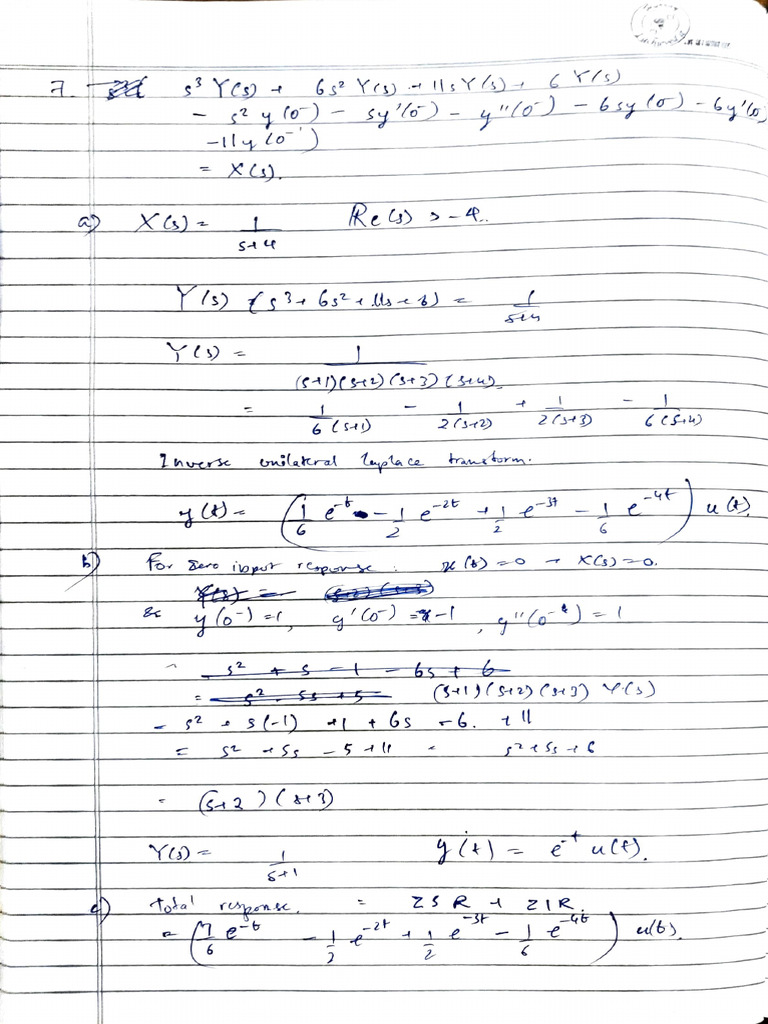 7. s³ Y(s) + 6s² Y(s) + 11s Y(s) + 6 Y(s)
- s² y(0⁻) - sy'(0⁻) - y''(0⁻) - 6sy(0⁻) - 6y'(0⁻)
- 11y(0⁻)
= X(s).
a) X(s) = 1/(s+4) Re(s) > -4.
Y(s) (s³ + 6s² + 11s + 6) = 1/(s+4)
Y(s) = 1/((s+1)(s+2)(s+3)(s+4))
= 1/(6(s+1)) - 1/(2(s+2)) + 1/(2(s+3)) - 1/(6(s+4))
Inverse unilateral laplace transform.
y(t) = (1/6 e^-t - 1/2 e^-2t + 1/2 e^-3t - 1/6 e^-4t) u(t).
b) For zero input response: x(t) = 0 → X(s) = 0.
& y(0⁻) = 1, y'(0⁻) = -1, y''(0⁻) = 1
s² + s - 1 - 6s + 6
= s² - 5s + 5 (s+1)(s+2)(s+3) Y(s)
= s² + s(-1) + 1 + 6s - 6. + 11
= s² + 5s - 5 + 11 = s² + 5s + 6
= (s+2)(s+3)
Y(s) = 1/(s+1) y(t) = e^-t u(t).
c) Total response. = ZSR + ZIR.
= (7/6 e^-t - 1/2 e^-2t + 1/2 e^-3t - 1/6 e^-4t) u(t).